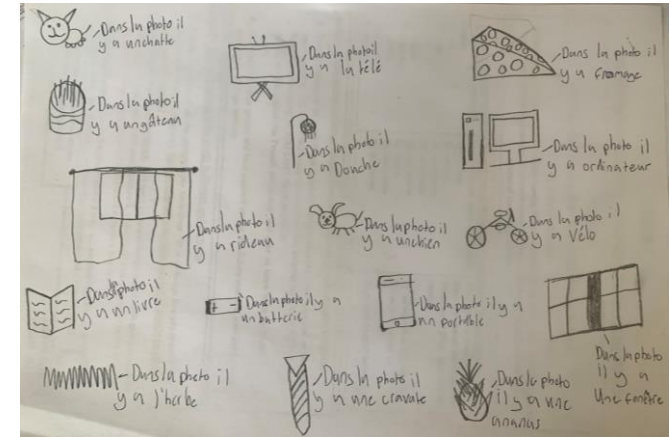 Dans la photo il
y a un chatte
Dans la photo il
y a la télé
Dans la photo il
y a fromage
Dans la photo il
y a un gâteau
Dans la photo il
y a Douche
Dans la photo il
y a ordinateur
Dans la photo il
y a rideau
Dans la photo il
y a un chien
Dans la photo il
y a Vélo
Dans photo il
y a un livre
Dans la photo il y a
un batterie
Dans la photo il y a
un portable
Dans la photo
il y a
Une fenêtre
Dans la photo il
y a l'herbe
Dans la photo il
y a une cravate
Dans la photo
il y a une
ananas